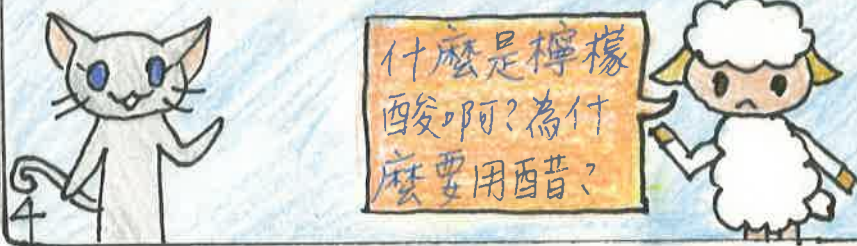 什麼是檸檬
酸啊?為什
麼要用醋?
4